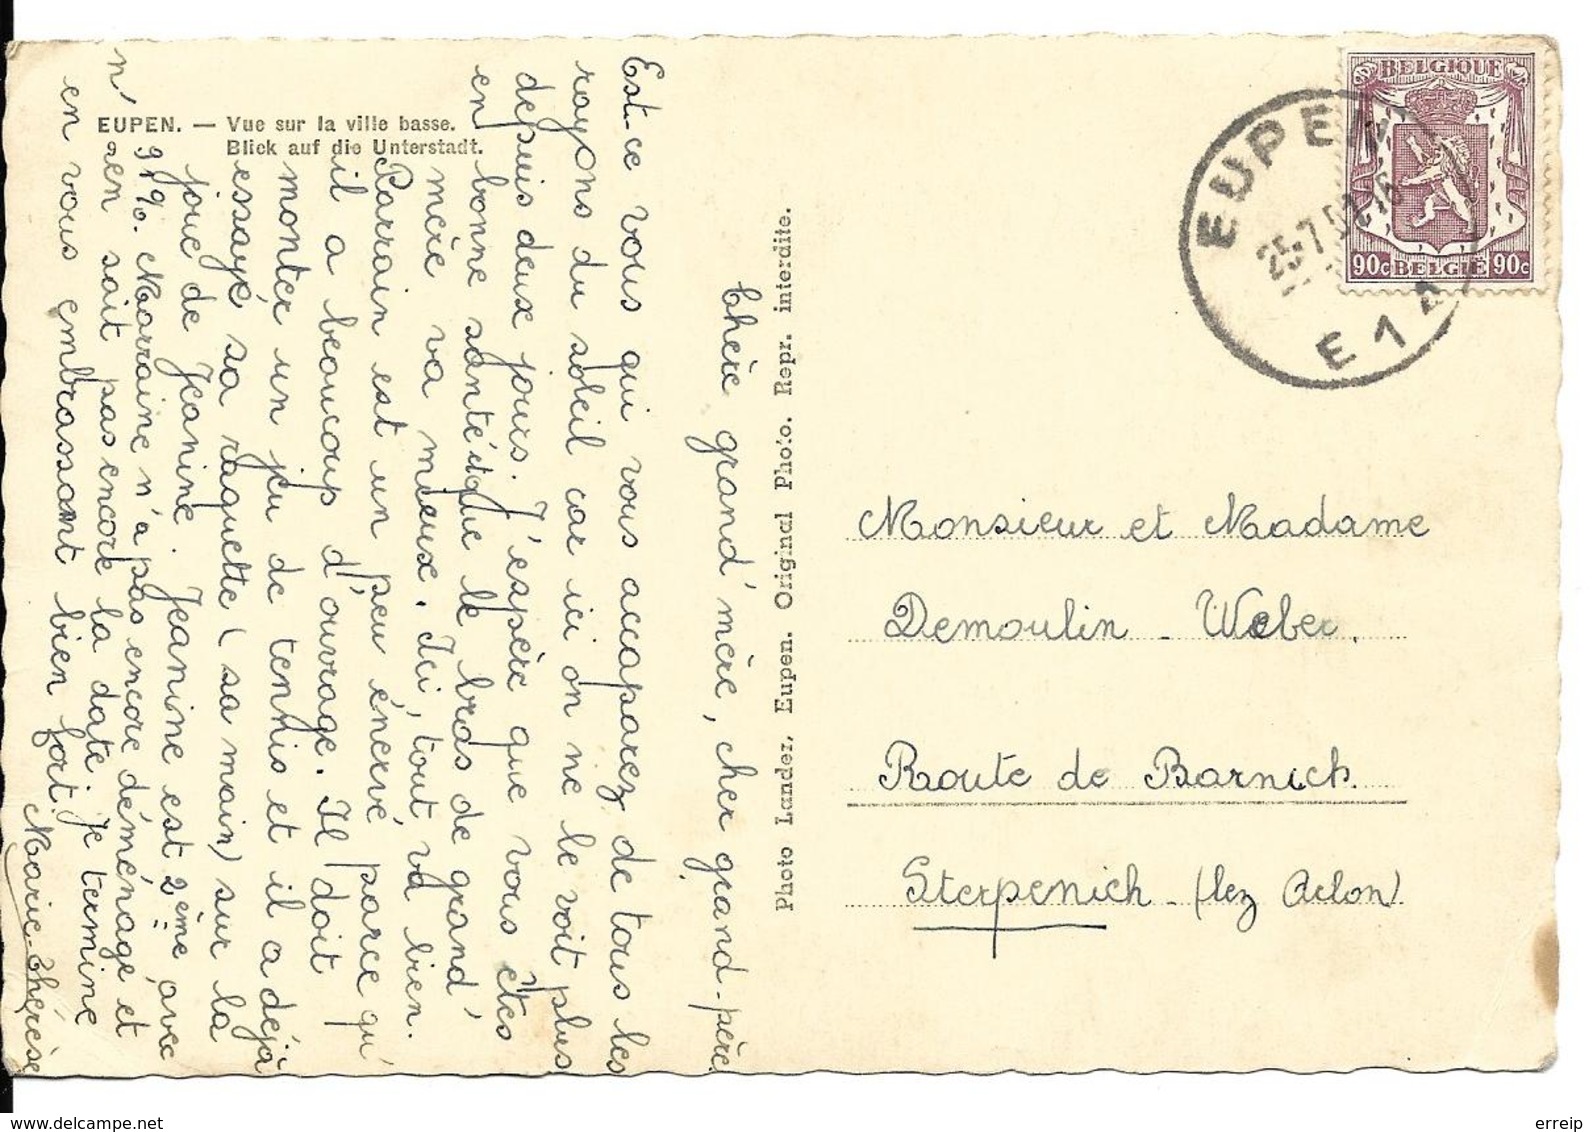 EUPEN. — Vue sur la ville basse.
Blick auf die Unterstadt.
Chère grand'mère, cher grand-père
Est-ce vous qui vous accaparez de tous les
rayons du soleil car ici on ne le voit plus
depuis deux jours. J'espère que vous êtes
en bonne santé et que le bras de grand'
mère va mieux. Ici, tout va bien.
Parrain est un peu énervé parce qu'
il a beaucoup d'ouvrage. Il doit
monter un jeu de tennis et il a déjà
essayé sa raquette (sa main) sur la
joue de Jeanine. Jeanine est 2ème avec
91%. Marraine n'a pas encore déménagé et
n'en sait pas encore la date. Je termine
en vous embrassant bien fort.
Marie-Thérèse
Photo Lander, Eupen. Original Photo. Repr. interdite.
BELGIQUE
90c BELGIË 90c
EUPEN
25-7.5 16
E1A
Monsieur et Madame
Demoulin - Weber.
Route de Barnich.
Sterpenich - (lez Arlon)
www.delcampe.net
erreip